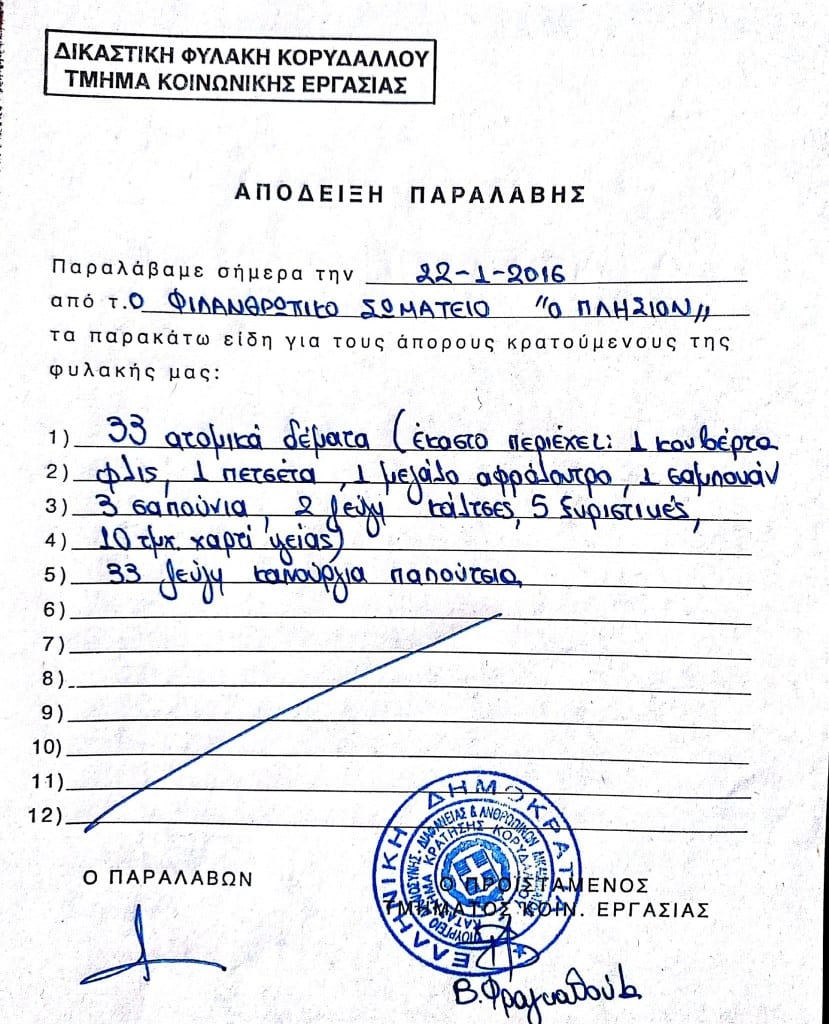 ΔΙΚΑΣΤΙΚΗ ΦΥΛΑΚΗ ΚΟΡΥΔΑΛΛΟΥ
ΤΜΗΜΑ ΚΟΙΝΩΝΙΚΗΣ ΕΡΓΑΣΙΑΣ
ΑΠΟΔΕΙΞΗ ΠΑΡΑΛΑΒΗΣ
Παραλάβαμε σήμερα την 22-1-2016
από τ.Ο ΦΙΛΑΝΘΡΩΠΙΚΟ ΣΩΜΑΤΕΙΟ "Ο ΠΛΗΣΙΟΝ"
τα παρακάτω είδη για τους άπορους κρατούμενους της
φυλακής μας:
1) 33 ατομικά δέματα (έκαστο περιέχει: 1 κουβέρτα
2) φλις, 1 πετσέτα, 1 μεγάλο αφρόλουτρο, 1 σαμπουάν
3) 3 σαπούνια, 2 ζεύγη κάλτσες, 5 ξυριστικές,
4) 10 τμχ. χαρτί υγείας)
5) 33 ζεύγη καινούργια παπούτσια
6)
7)
8)
9)
10)
11)
12)
ΕΛΛΗΝΙΚΗ ΔΗΜΟΚΡΑΤΙΑ
Ο ΠΑΡΑΛΑΒΩΝ
Ο ΠΡΟΪΣΤΑΜΕΝΟΣ
ΤΜΗΜΑΤΟΣ ΚΟΙΝ. ΕΡΓΑΣΙΑΣ